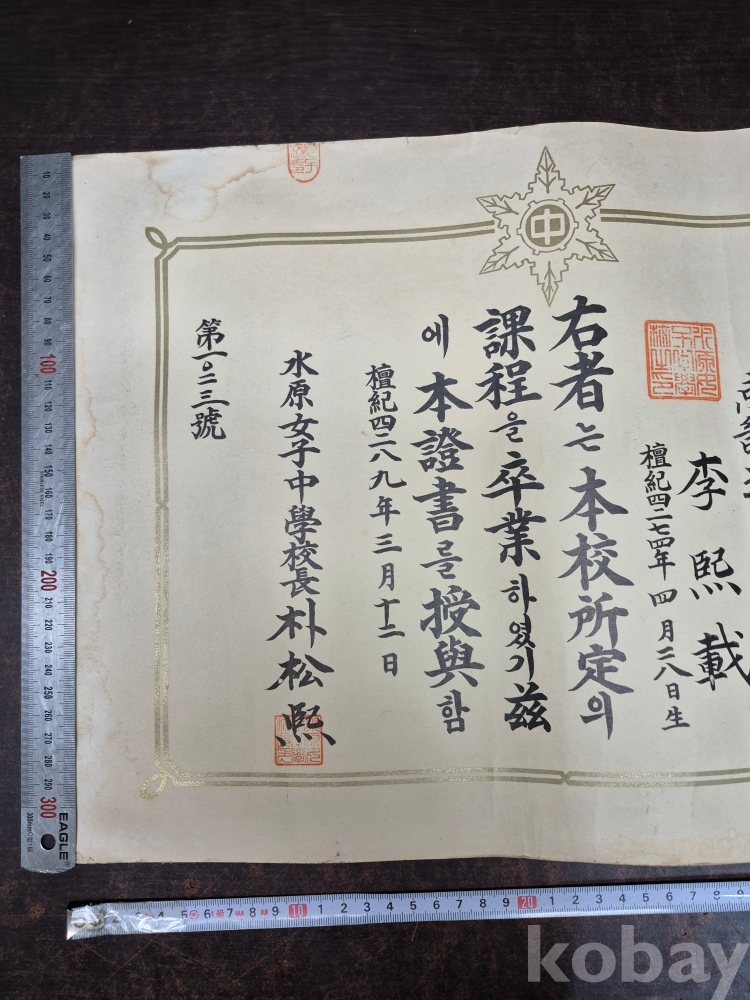 中
李熙載
檀紀四二七四年四月二八日生
右者는本校所定의
課程을卒業하였기玆
에本證書를授與함
檀紀四二八九年三月十二日
水原女子中學校長朴松熙
第一〇二三號
EAGLE
kobay